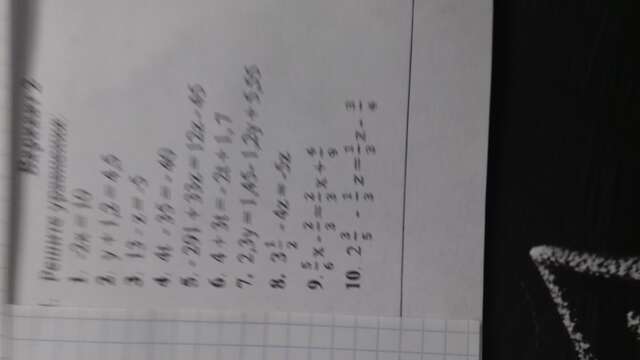 Вариант 2
1. Решите уравнения:
1. -2x = 10
2. y + 1,2 = 4,5
3. 13 - x = -5
4. 4t - 35 = -
5. - 291 + 33x = 12x -
6. 4 + 3t = - 2t + 1,7
7. 2,3y = 1,45 - 1,2y + 5,55
8. 3 1/2 - 4z = -5z
9. 5/6 x - 2/3 = 2/3 x +
10. 2 3/5 - 1/3 z = z -